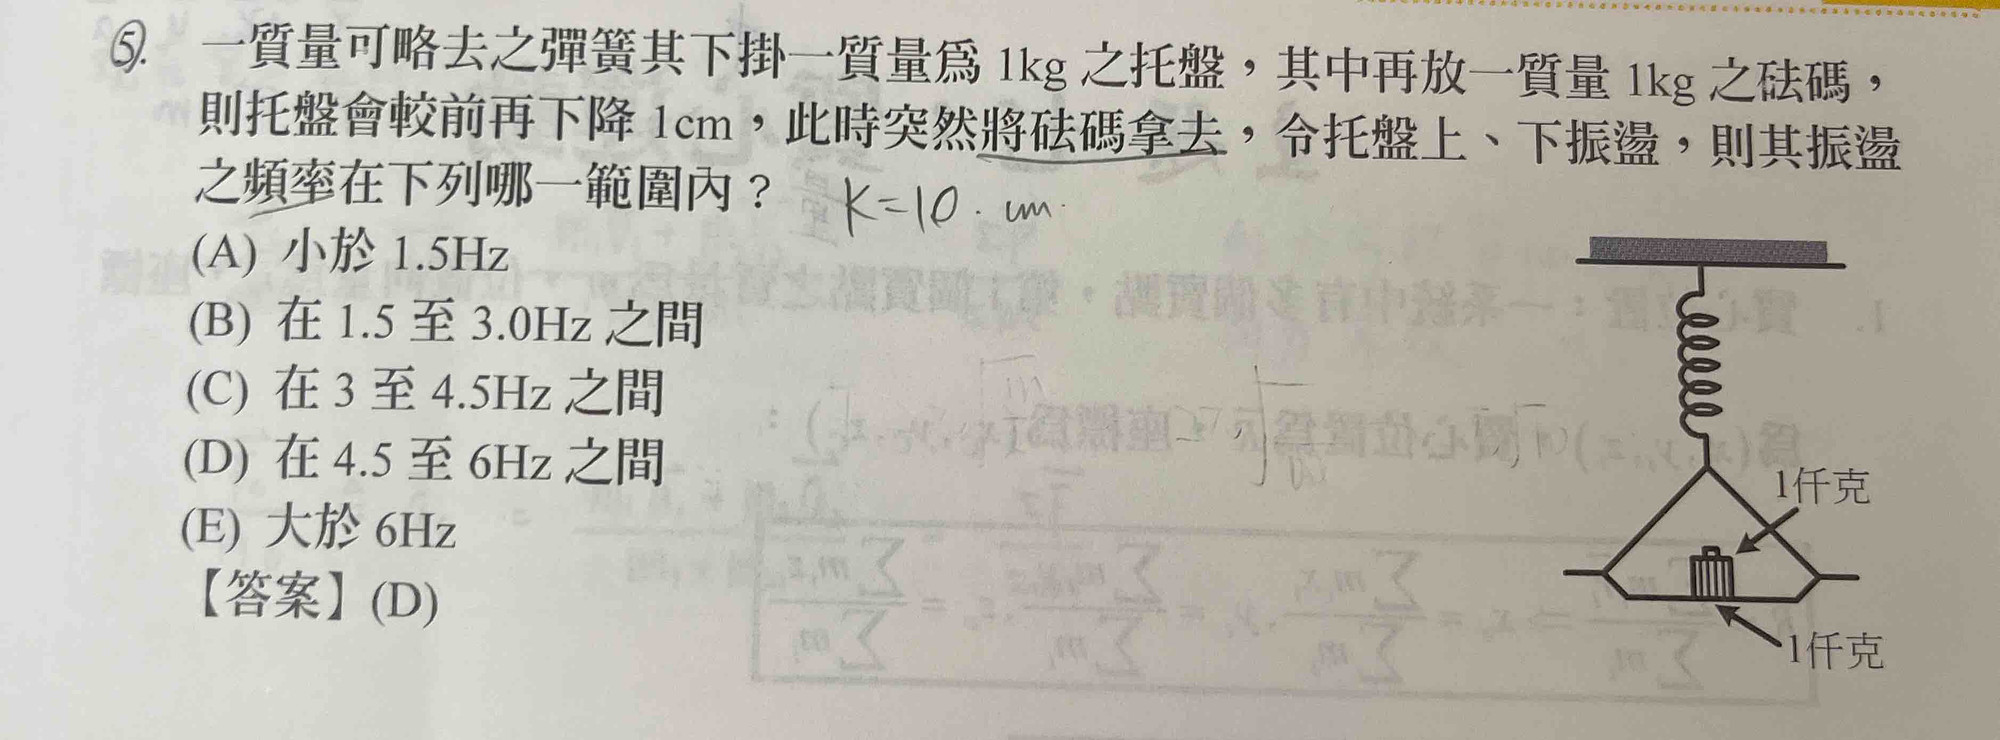 ⑤. 一質量可略去之彈簧其下掛一質量爲 1kg 之托盤，其中再放一質量 1kg 之砝碼，
則托盤會較前再下降 1cm，此時突然將砝碼拿去，令托盤上、下振盪，則其振盪
之頻率在下列哪一範圍內？ K=10. cm.
(A) 小於 1.5Hz
(B) 在 1.5 至 3.0Hz 之間
(C) 在 3 至 4.5Hz 之間
(D) 在 4.5 至 6Hz 之間
(E) 大於 6Hz
【答案】(D)
1仟克
1仟克